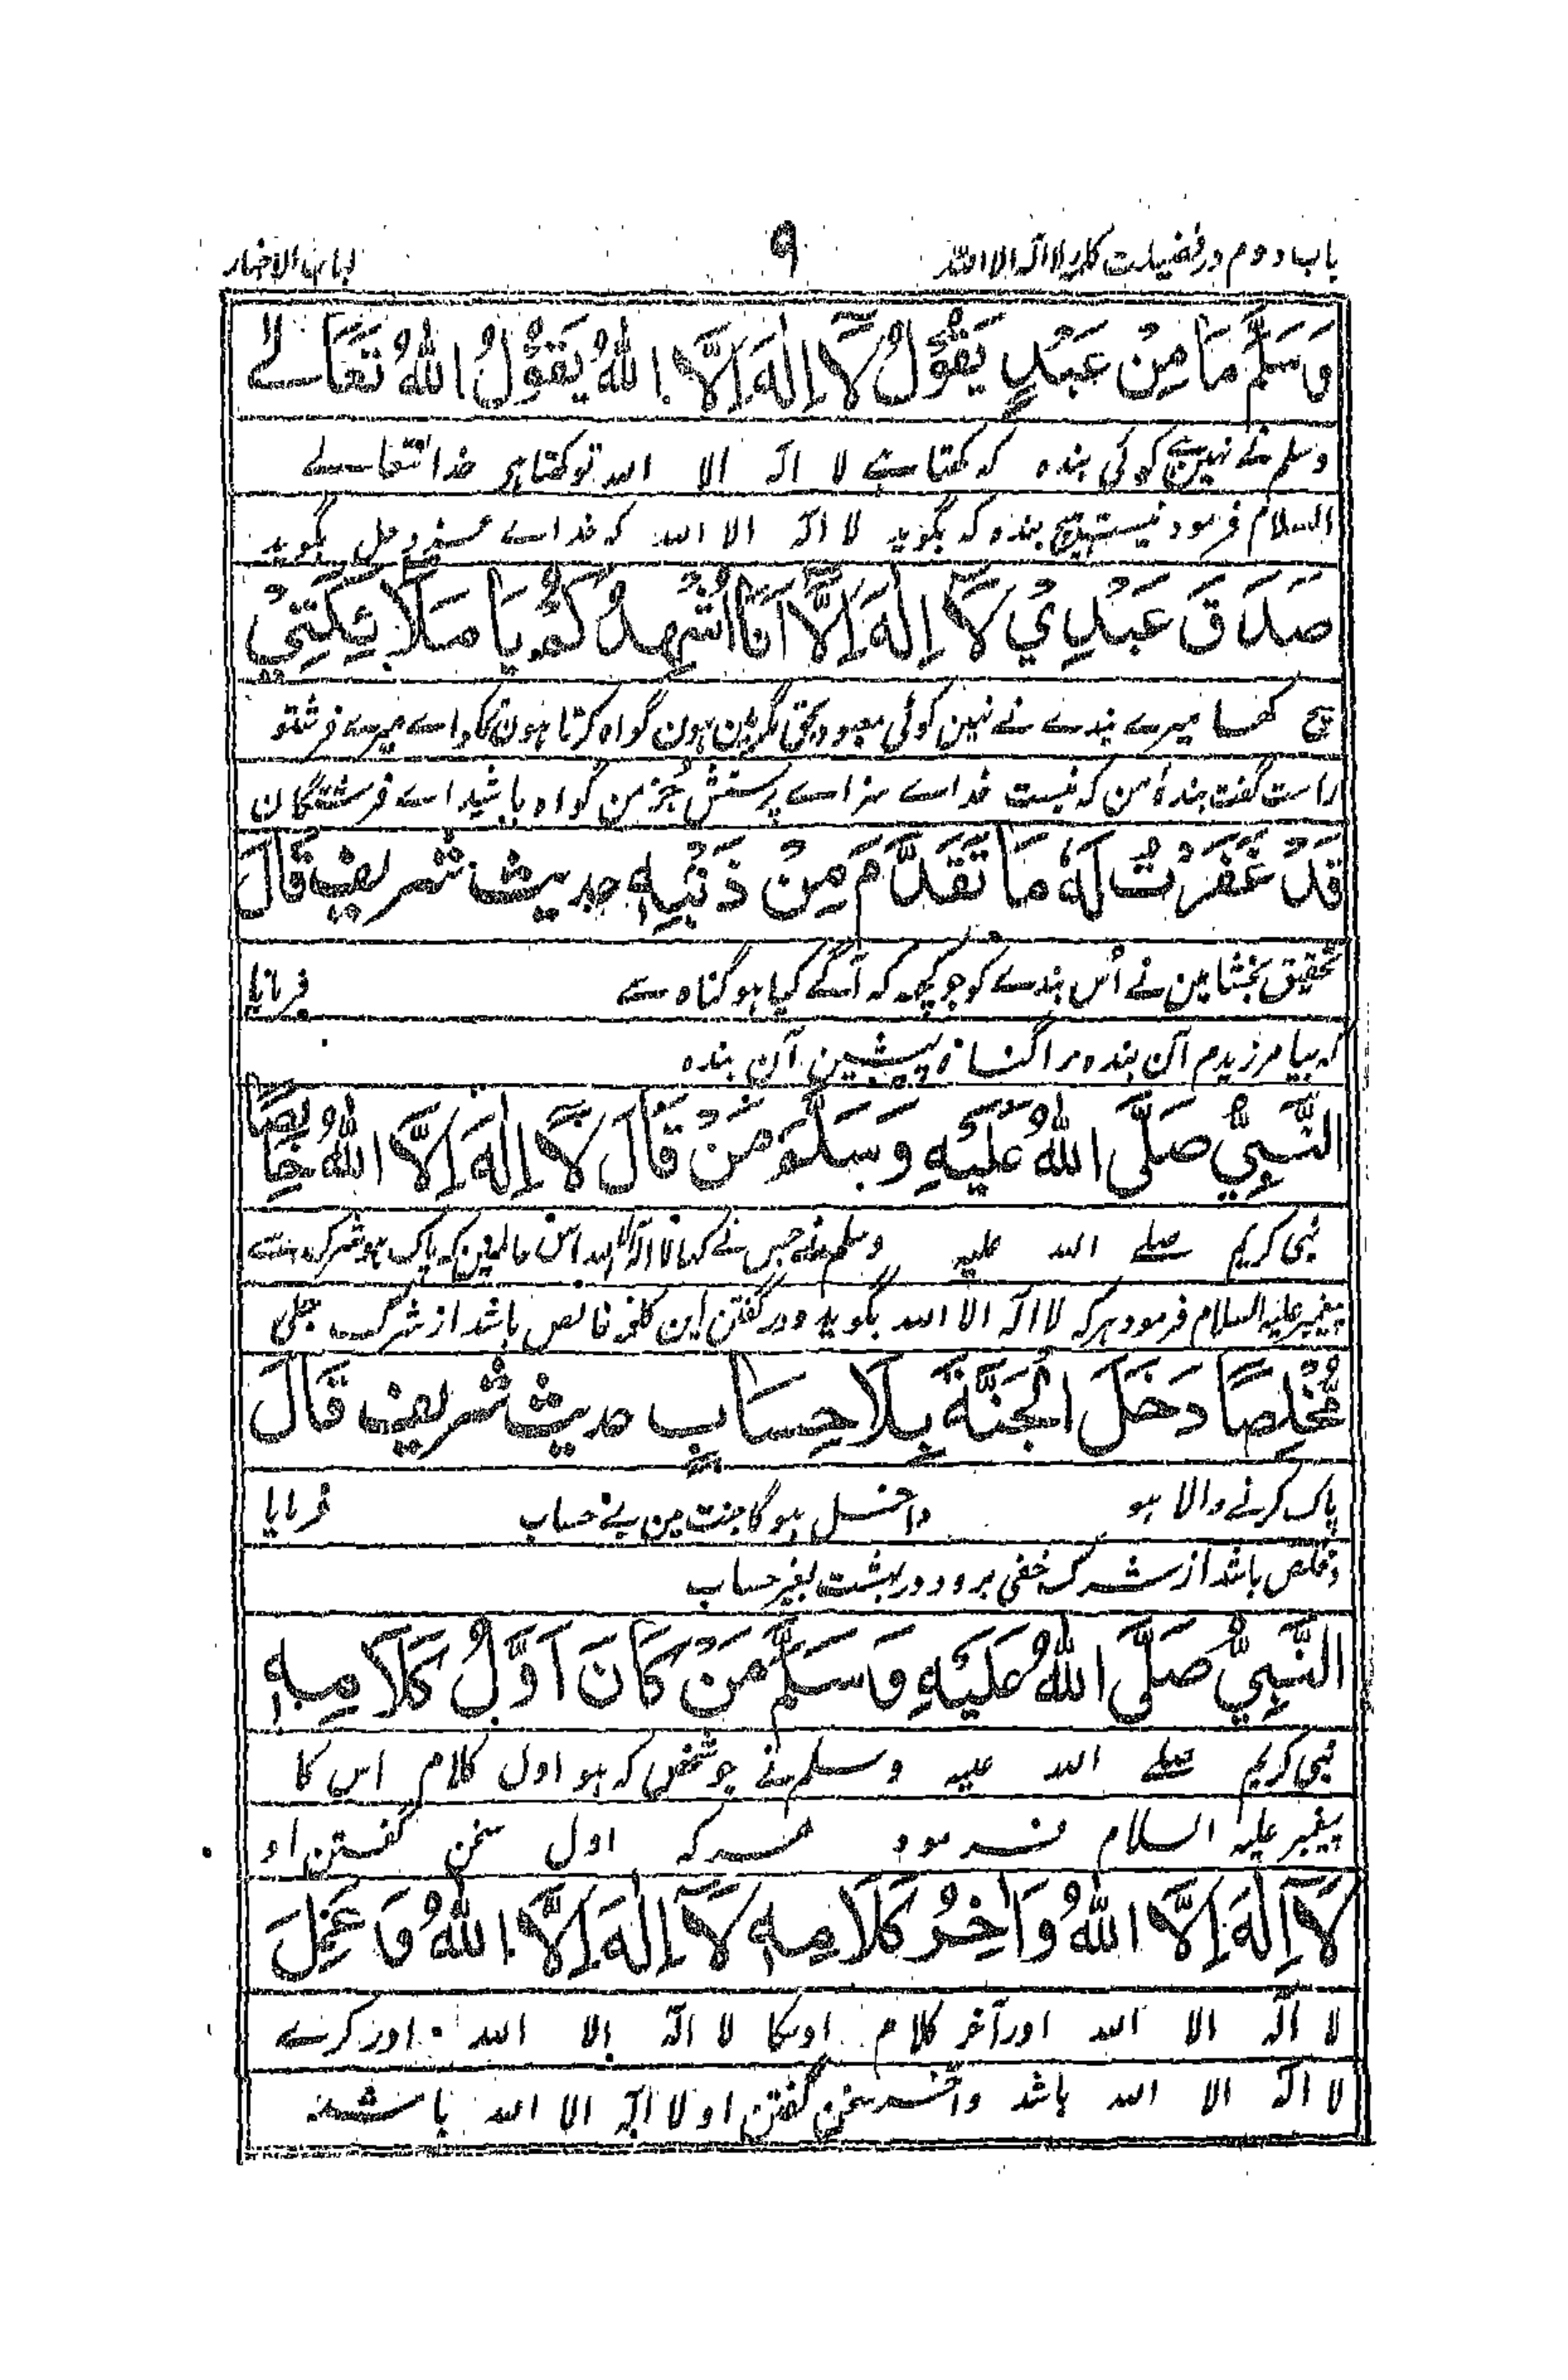 باب دوم در فضیلت کلمہ لا الہ الا اللہ ۹ لباب الاخبار
وَسَلَّمَ مَا مِنْ عَبْدٍ يَقُوْلُ لَآ اِلٰهَ اِلَّا اللهُ يَقُوْلُ اللهُ تَعَالٰے
وسلم نے نہیں ہے کوئی بندہ کہ کہتا ہے لا الٰہ الا اللہ تو کہتا ہی خدائتعالے
السلام فرمود نیست ہیچ بندہ کہ بگوید لا الٰہ الا اللہ کہ خداے عزوجل بگوید
صَدَقَ عَبْدِيْ لَآ اِلٰهَ اِلَّآ اَنَا اُشْهِدُكُمْ يَا مَلَآئِكَتِيْ
سچ کہا میرے بندے نے نہین کوئی معبود بحق مگر مین ہون گواہ کرتا ہون تمکو اے میرے فرشتو
راست گفت بندۂ من کہ نیست خداے سزاے پرستش جُز من گواہ باشید اے فرشتگان
قَدْ غَفَرْتُ لَهٗ مَا تَقَدَّمَ مِنْ ذَنْبِهٖ حدیث شریف قَالَ
تحقیق بخشا مین نے اُس بندے کو جو کچھ کہ آگے کیا ہو گناہ سے فرمایا
کہ بیامرزیدم آن بندہ را گناہ پیشین آن بندہ
النَّبِيُّ صَلَّى اللهُ عَلَيْهِ وَسَلَّمَ مَنْ قَالَ لَآ اِلٰهَ اِلَّا اللهُ خَالِصًا
نبی کریم صلے اللہ علیہ وسلم نے جس نے کہا لا الہ الا اللہ اس حال مین کہ پاک ہو شرک سے
پیغمبر علیہ السلام فرمود ہر کہ لا الٰہ الا اللہ بگوید و در گفتن این کلمہ خالص باشد از شرک جلی
مُخْلِصًا دَخَلَ الْجَنَّةَ بِلَا حِسَابٍ حدیث شریف قَالَ
پاک کرنے والا ہو داخل ہوگا جنت مین بے حساب فرمایا
و مخلص باشد از شرک خفی برود در بہشت بغیر حساب
النَّبِيُّ صَلَّى اللهُ عَلَيْهِ وَسَلَّمَ مَنْ كَانَ اَوَّلُ كَلَامِهٖ
نبی کریم صلے اللہ علیہ وسلم نے جو شخص کہ ہو اول کلام اس کا
پیغمبر علیہ السلام فرمود ہر کہ اول سخن گفتن او
لَآ اِلٰهَ اِلَّا اللهُ وَاٰخِرُ كَلَامِهٖ لَآ اِلٰهَ اِلَّا اللهُ وَعَمِلَ
لا الٰہ الا اللہ اور آخر کلام اوسکا لا الٰہ الا اللہ اور کرے
لا الٰہ الا اللہ باشد و آخر سخن گفتن او لا الٰہ الا اللہ باشد